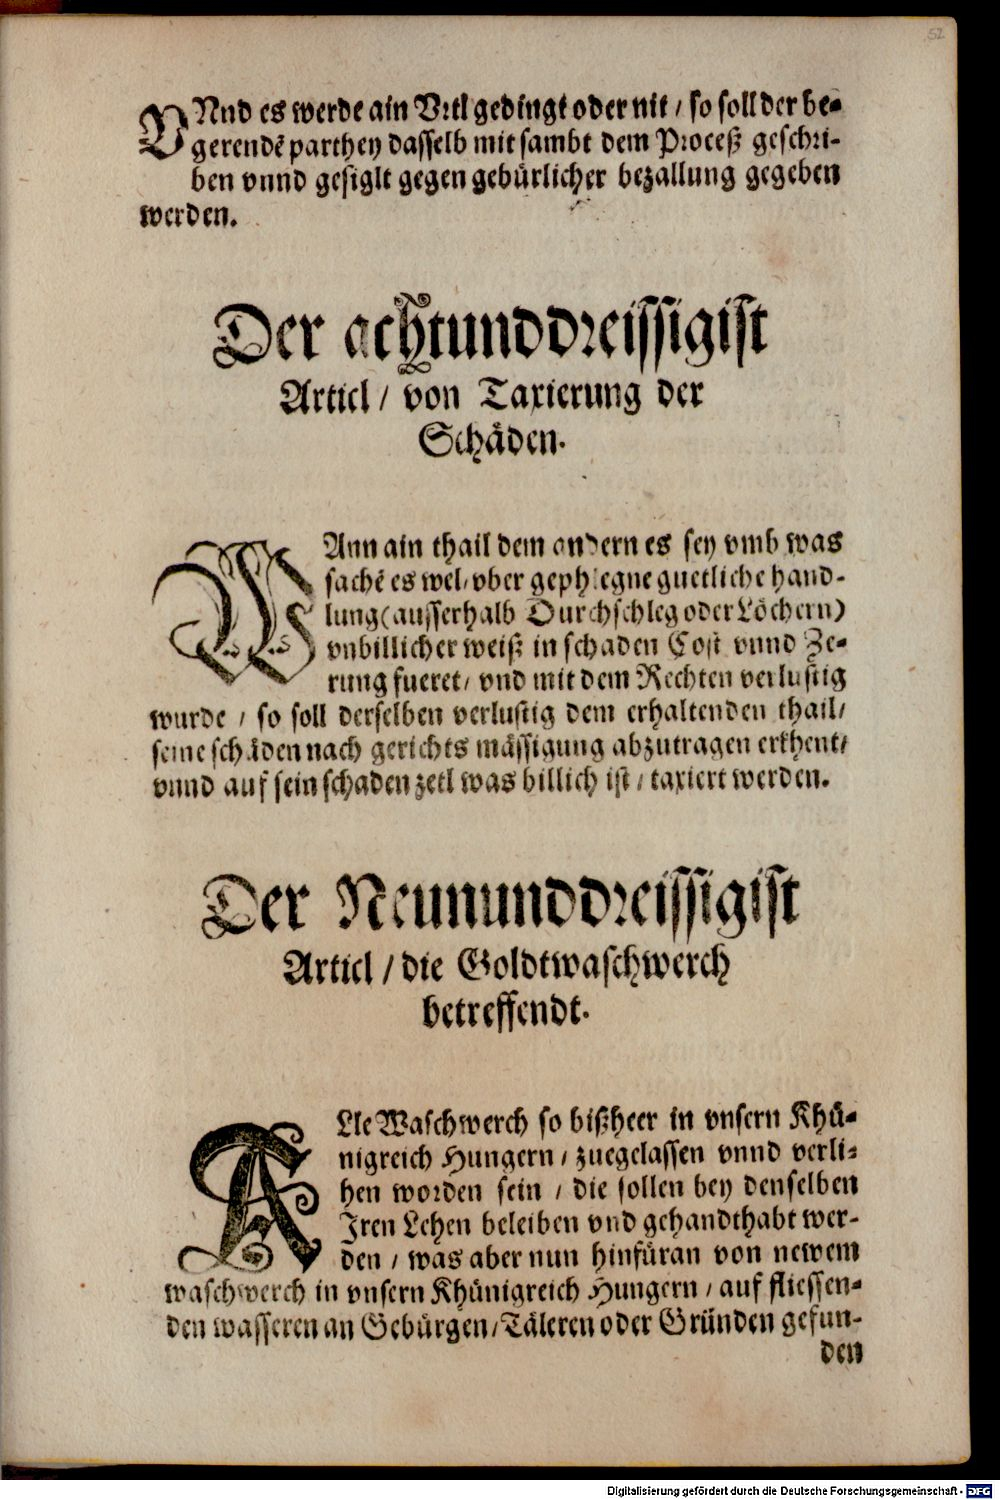 52
VNnd es werde ain Vrtl gedingt oder nit / so soll der be-
gerendẽ parthey dasselb mit sambt dem Proceß geschri-
ben vnnd gesiglt gegen gebürlicher bezallung gegeben
werden.
Der achtunddreissigist
Articl / von Taxierung der
Schäden.
WAnn ain thail dem andern es sey vmb was
sachẽ es wel / vber gephlegne guetliche hand-
lung (ausserhalb Durchschleg oder Löchern)
vnbillicher weiß in schaden Cost vnnd Ze-
rung fueret / vnd mit dem Rechten verlustig
wurde / so soll derselben verlustig dem erhaltenden thail /
seine schäden nach gerichts mässigung abzutragen erkhent /
vnnd auf sein schaden zetl was billich ist / taxiert werden.
Der Neununddreissigist
Articl / die Goldtwaschwerch
betreffendt.
ALle Waschwerch so bißheer in vnsern Khü-
nigreich Hungern / zuegelassen vnnd verli-
hen worden sein / die sollen bey denselben
Iren Lehen beleiben vnd gehandthabt wer-
den / was aber nun hinfüran von newem
waschwerch in vnsern Khünigreich Hungern / auf fliessen-
den wasseren an Gebürgen / Täleren oder Gründen gefun-
den
Digitalisierung gefördert durch die Deutsche Forschungsgemeinschaft - DFG